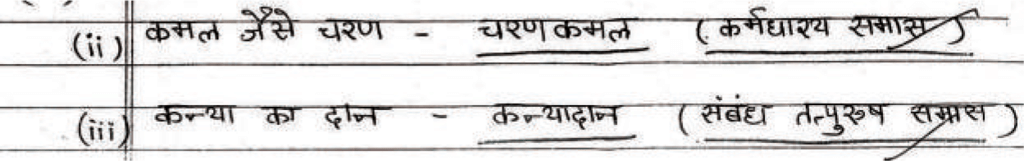 (ii) कमल जैसे चरण - चरणकमल (कर्मधारय समास)
(iii) कन्या का दान - कन्यादान (संबंध तत्पुरुष समास)